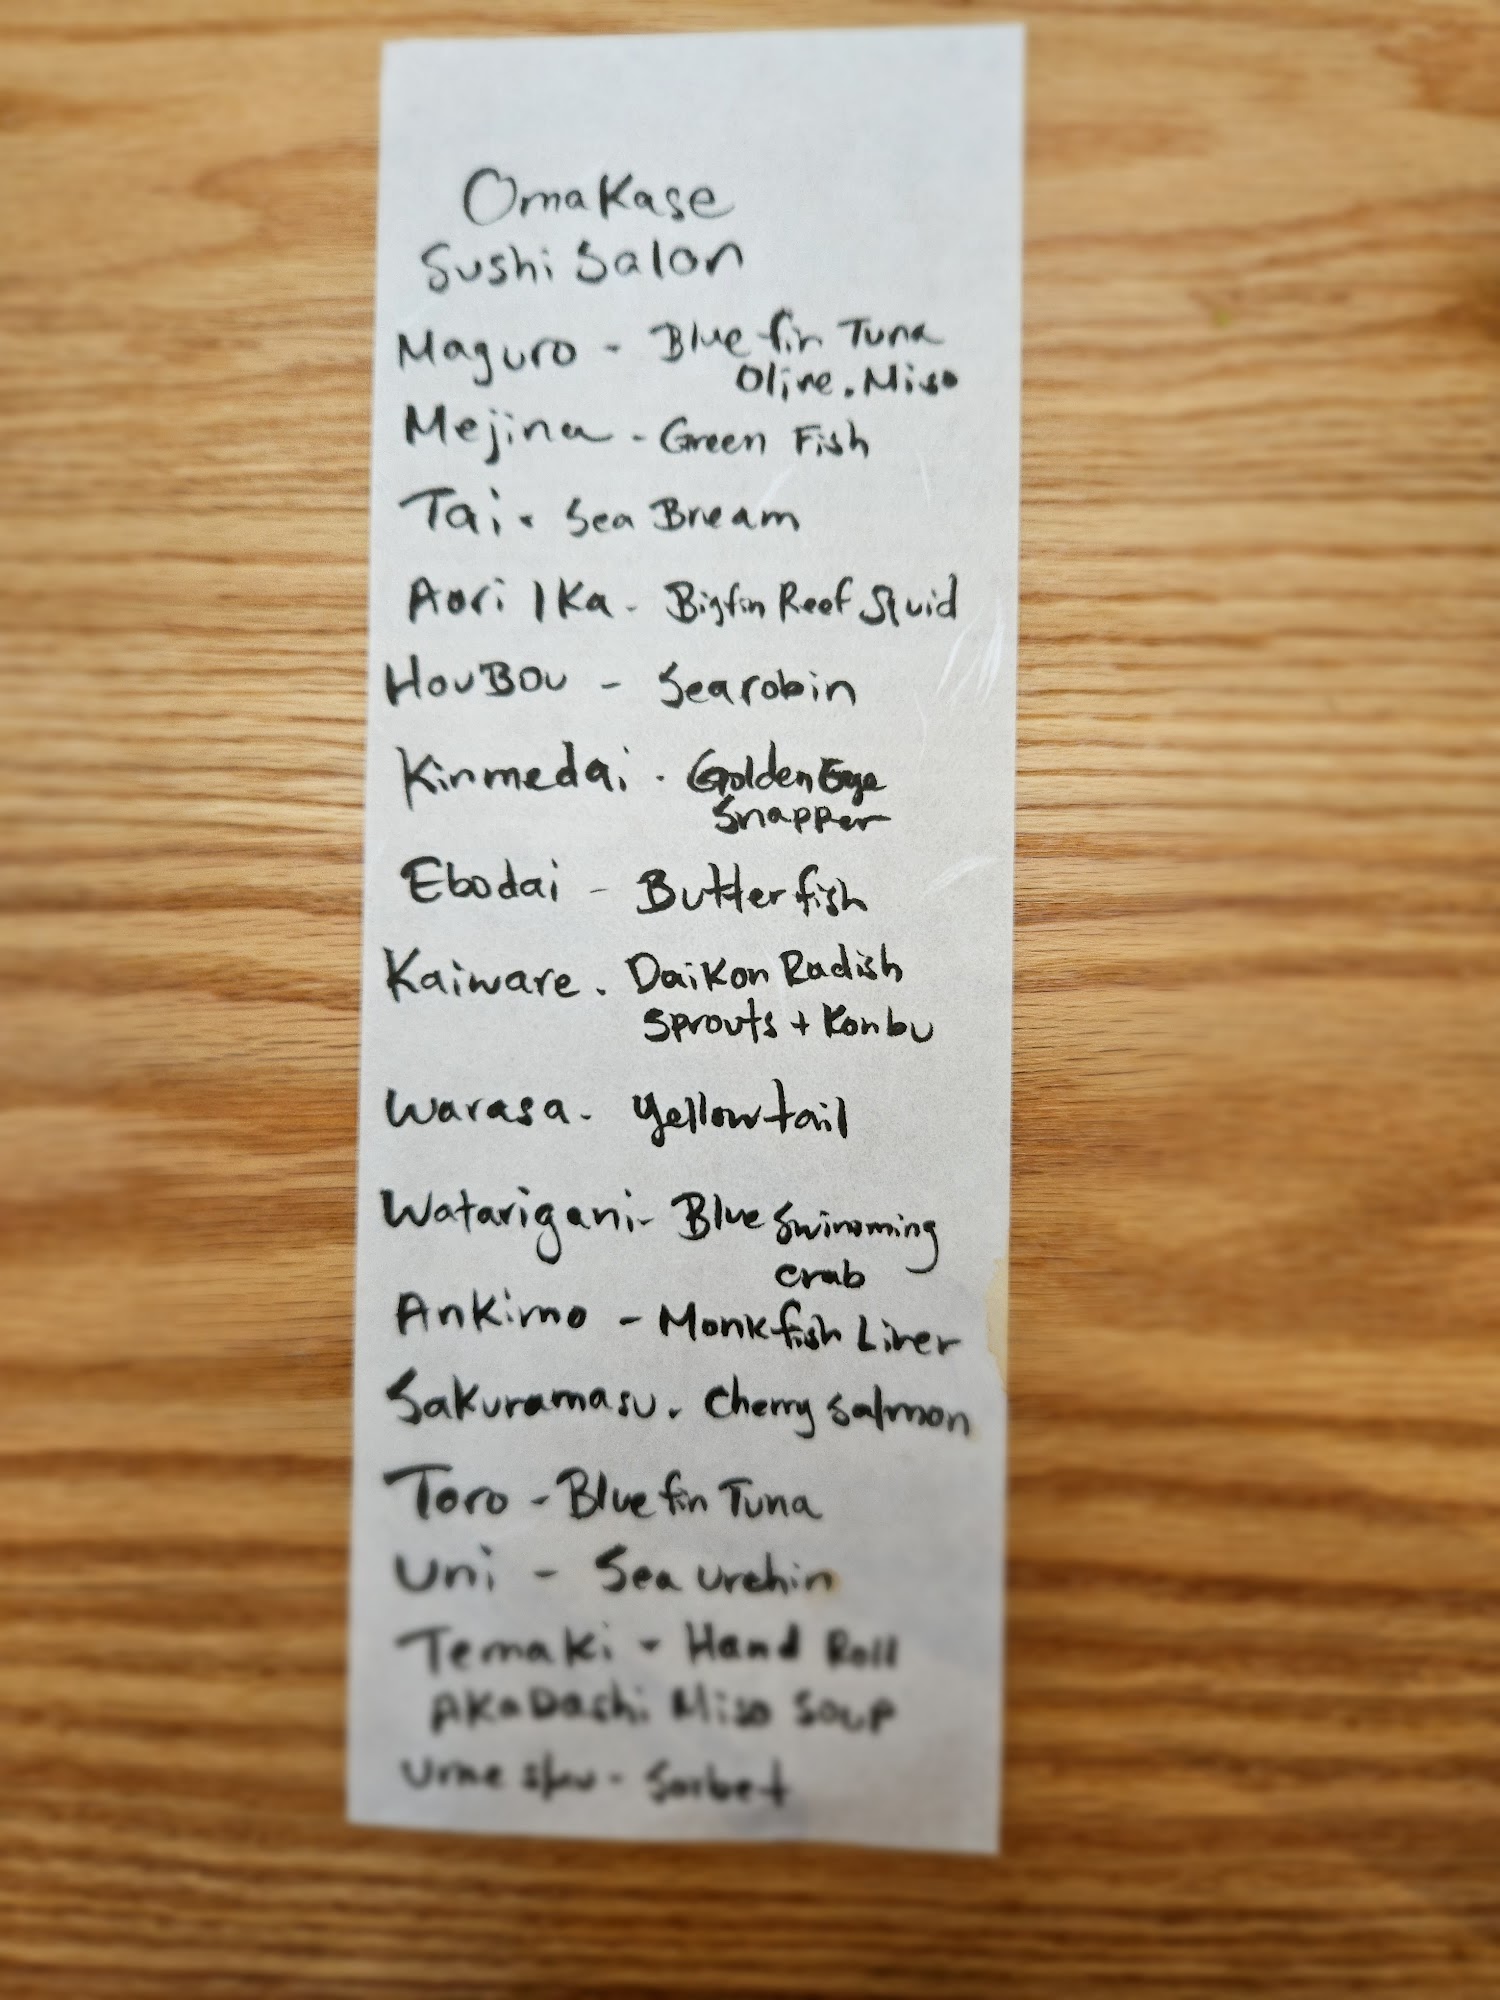 Omakase
Sushi Salon
Maguro - Bluefin Tuna
Olive. Miso
Mejina - Green Fish
Tai - Sea Bream
Aori Ika - Bigfin Reef Squid
HouBou - Searobin
Kinmedai . Golden Eye
Snapper
Ebodai - Butterfish
Kaiware . Daikon Radish
Sprouts + Konbu
Warasa - Yellowtail
Watarigani - Blue Swimming
Crab
Ankimo - Monkfish Liver
Sakuramasu . Cherry Salmon
Toro - Bluefin Tuna
Uni - Sea Urchin
Temaki - Hand Roll
AkaDashi Miso Soup
Umeshu - Sorbet